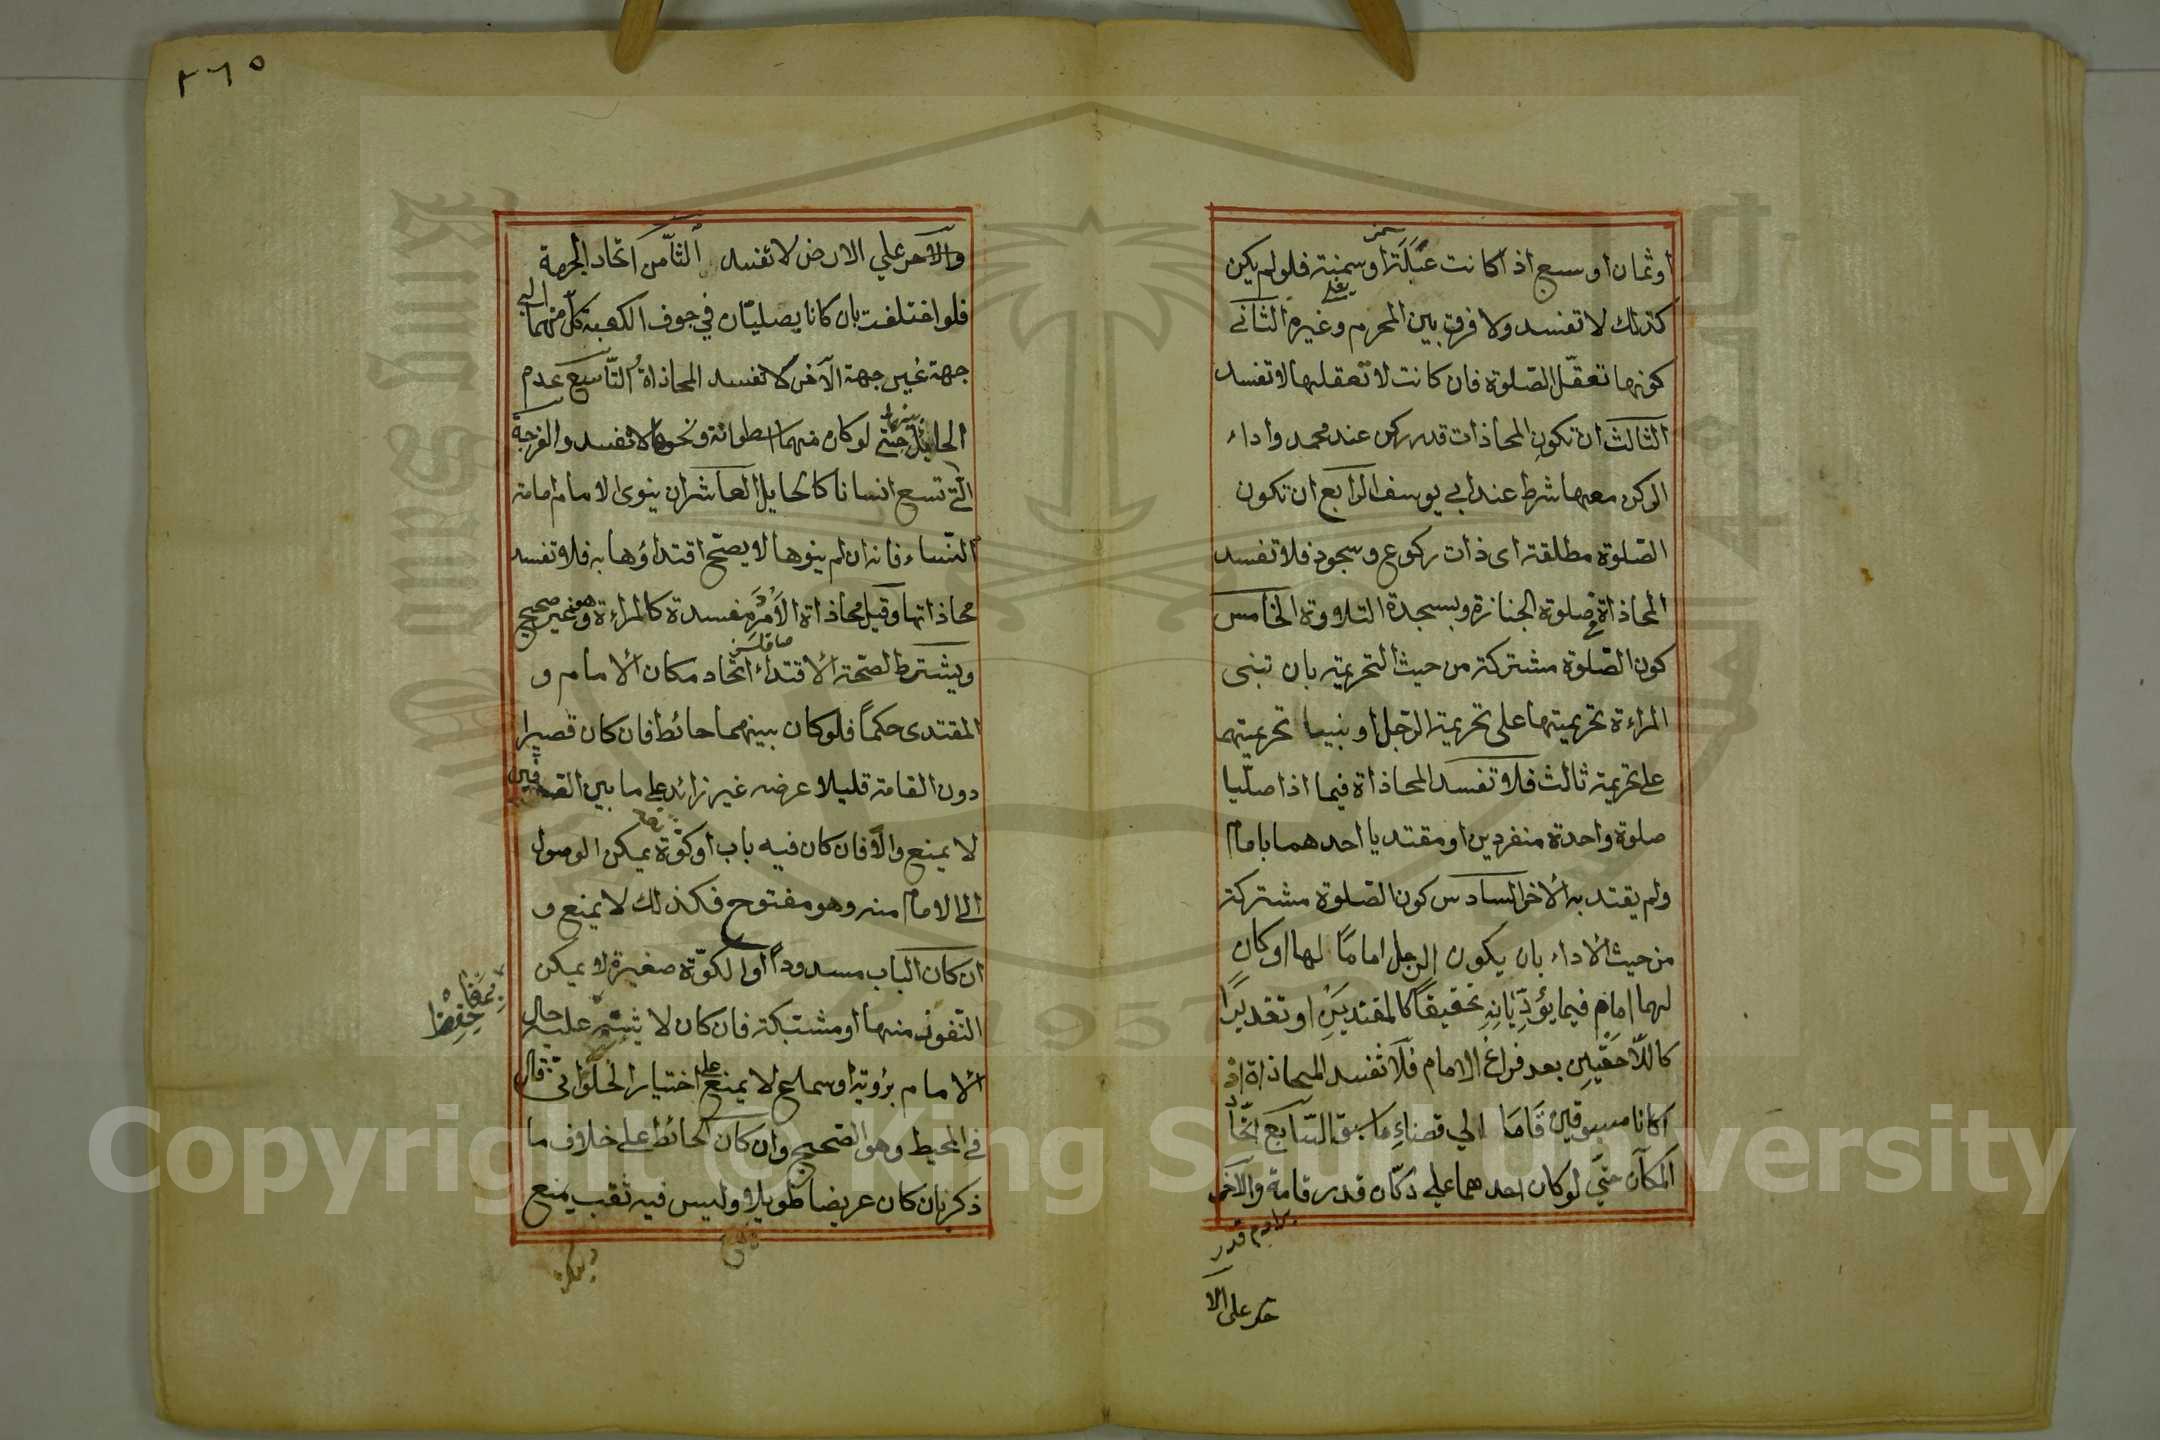 اوثمان اوسبع اذا كانت عبلة اوسمينة فلولم يكن
كذلك لا تفسد ولا فرق بين المحرم وغيره الثاني
كونها تعقل الصلوة فان كانت لا تعقلها لا تفسد
الثالث ان تكون المحاذات قدر ركن عند محمد واداء
الركن معها شرط عند ابي يوسف الرابع ان تكون
الصلوة مطلقة اى ذات ركوع وسجود فلا تفسد
المحاذاة في صلوة الجنازة وبسجدة التلاوة الخامس
كون الصلوة مشتركة من حيث التحريمة بان تبنى
المراءة تحريمتها على تحريمة الرجل او بنيا تحريمتهما
على تحريمة ثالث فلا تفسد المحاذاة فيما اذا صليا
صلوة واحدة منفردين او مقتديا احدهما بامام
ولم يقتد به الاخر السادس كون الصلوة مشتركة
من حيث الاداء بان يكون الرجل اماما لها او كان
لهما امام فيما يؤديانه تحقيقا كالمقتديين او تقديرا
كاللاحقين بعد فراغ الامام فلا تفسد المحاذاة اذ
اكانا مسبوقين قاما الي قضاء ما سبق السابع اتحاد
المكان حتي لو كان احدهما علي دكان قدر قامة والاخر
خر على الا
٢٦٥
والآخر علي الارض لا تفسد الثامن اتحاد الجهة
فلو اختلفت بان كانا يصليان في جوف الكعبة كل منهما الي
جهة غير جهة الآخر لا تفسد المحاذاة التاسع عدم
الحايل حتي لو كان بينهما اسطوانة ونحوها لا تفسد والفرجة
التي تسع انسانا كالحايل العاشر ان ينوى الامام امامة
النساء فانه ان لم ينوها لا يصح اقتداؤها به فلا تفسد
محاذاتها وقيل محاذاة الامرد مفسدة كالمراءة وهو غير صحيح
ويشترط لصحة الاقتداء اتحاد مكان الامام و
المقتدى حكما فلو كان بينهما حائط فان كان قصيرا
دون القامة قليلا عرضه غير زائد على ما بين الصفين
لا يمنع والا فان كان فيه باب او كوة يمكن الوصول
الى الامام منه وهو مفتوح فكذلك لا يمنع و
ان كان الباب مسدودا او الكوة صغيرة لا يمكن
النفوذ منها او مشتبكة فان كان لا يشتبه عليه حال
الامام برؤية او سماع لا يمنع على اختيار الحلواني قال
في المحيط وهو الصحيح وان كان الحائط على خلاف ما
ذكر بان كان عريضا طويلا وليس فيه ثقب يمنع
Copyright © King Saud University
1957